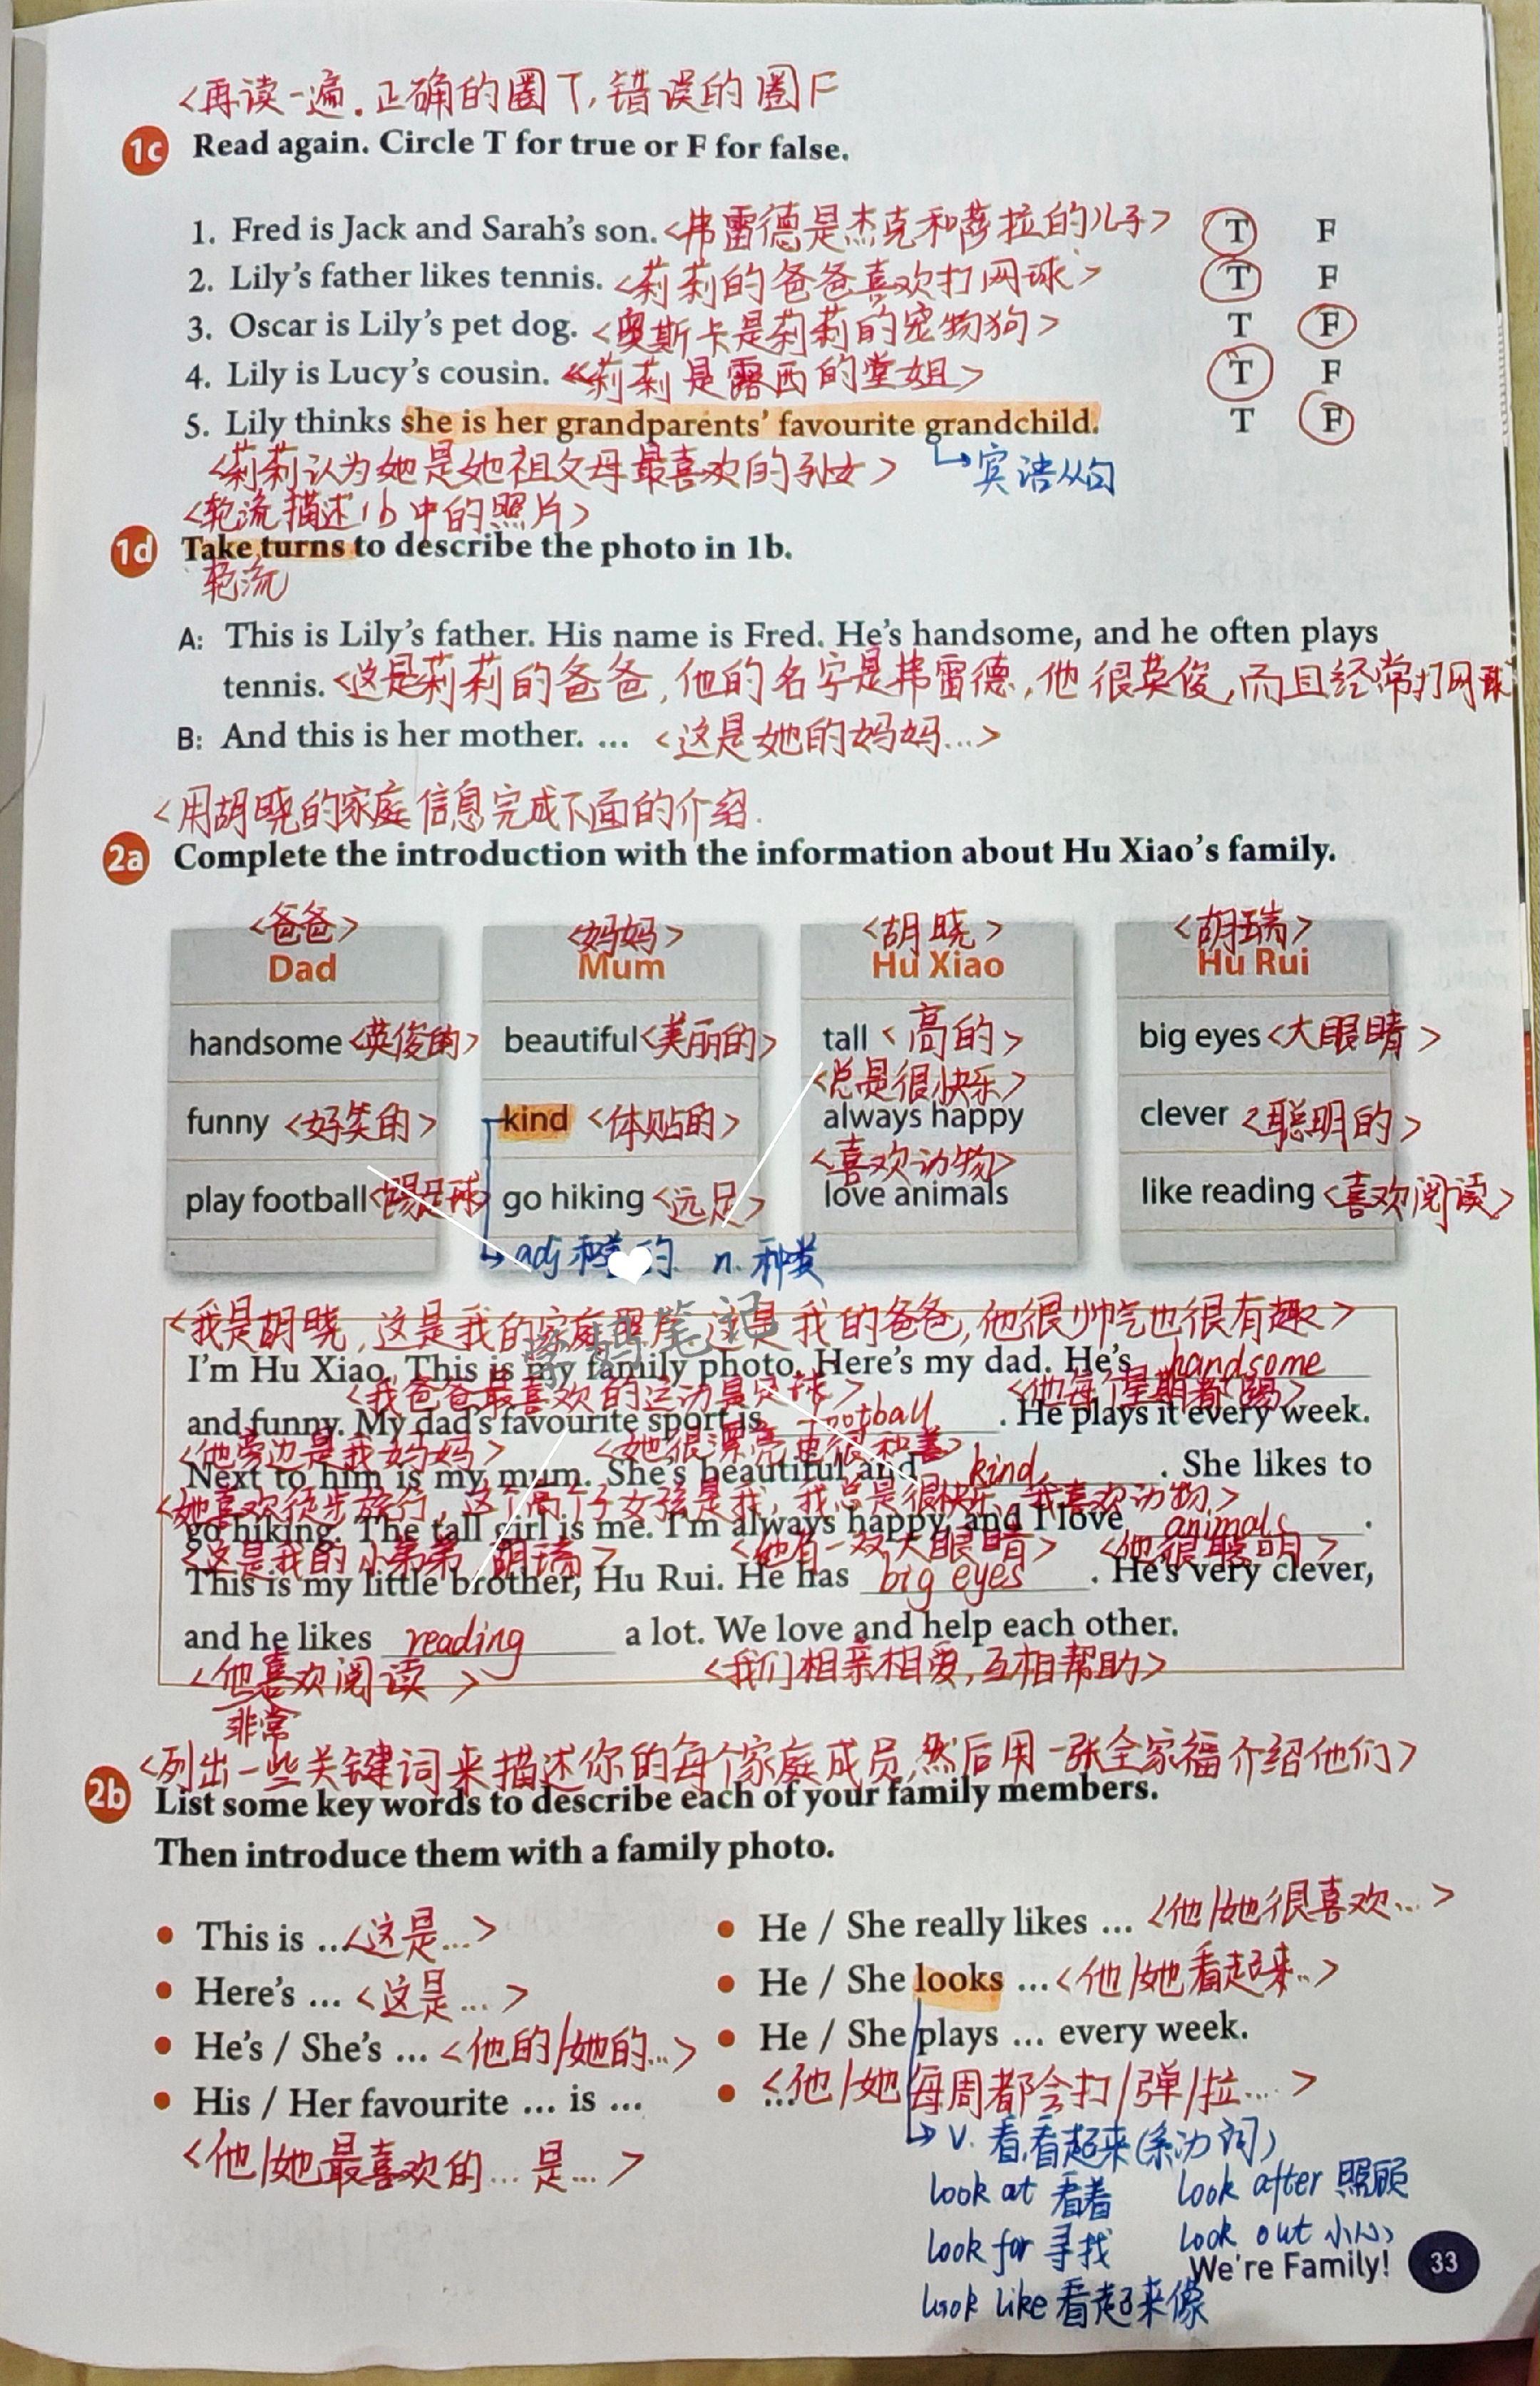 <再读一遍.正确的圈T,错误的圈F
1c Read again. Circle T for true or F for false.
1. Fred is Jack and Sarah's son. <弗雷德是杰克和莎拉的儿子> T F
2. Lily's father likes tennis. <莉莉的爸爸喜欢打网球> T F
3. Oscar is Lily's pet dog. <奥斯卡是莉莉的宠物狗> T F
4. Lily is Lucy's cousin. <莉莉是露西的堂姐> T F
5. Lily thinks she is her grandparents' favourite grandchild. T F
<莉莉认为她是她祖父母最喜欢的孙女> 宾语从句
<轮流描述1b中的照片>
1d Take turns to describe the photo in 1b.
轮流
A: This is Lily's father. His name is Fred. He's handsome, and he often plays
tennis. <这是莉莉的爸爸,他的名字是弗雷德,他很英俊,而且经常打网球
B: And this is her mother. ... <这是她的妈妈...>
<用胡晓的家庭信息完成下面的介绍.
2a Complete the introduction with the information about Hu Xiao's family.
<爸爸> <妈妈> <胡晓> <胡瑞>
Dad Mum Hu Xiao Hu Rui
handsome <英俊的> beautiful <美丽的> tall <高的> big eyes <大眼睛>
<总是很快乐>
funny <好笑的> kind <体贴的> always happy clever <聪明的>
<喜欢动物>
play football <踢足球> go hiking <远足> love animals like reading <喜欢阅读>
adj 和善的 n. 种类
<我是胡晓,这是我的家庭照片,这是我的爸爸,他很帅气也很有趣>
学妈笔记
I'm Hu Xiao. This is my family photo. Here's my dad. He's handsome
<我爸爸最喜欢的运动是足球> <他每个星期都踢>
and funny. My dad's favourite sport is football. He plays it every week.
<他旁边是我妈妈> <她很漂亮也很和善>
Next to him is my mum. She's beautiful and kind. She likes to
<她喜欢徒步旅行,这个高个子女孩是我,我总是很快乐,我喜欢动物>
go hiking. The tall girl is me. I'm always happy, and I love animals.
<这是我的小弟弟 胡瑞> <他有一双大眼睛> <他很聪明>
This is my little brother, Hu Rui. He has big eyes. He's very clever,
and he likes reading a lot. We love and help each other.
<他喜欢阅读> <我们相亲相爱,互相帮助>
非常
<列出一些关键词来描述你的每个家庭成员,然后用一张全家福介绍他们>
2b List some key words to describe each of your family members.
Then introduce them with a family photo.
• This is ... <这是...> • He / She really likes ... <他/她很喜欢...>
• Here's ... <这是...> • He / She looks ... <他/她看起来...>
• He's / She's ... <他的/她的...> • He / She plays ... every week.
• His / Her favourite ... is ... • ... <他/她每周都会打/弹/拉...>
<他/她最喜欢的...是...> v. 看,看起来(系动词)
look at 看着 look after 照顾
look for 寻找 look out 小心
We're Family! 33
look like 看起来像